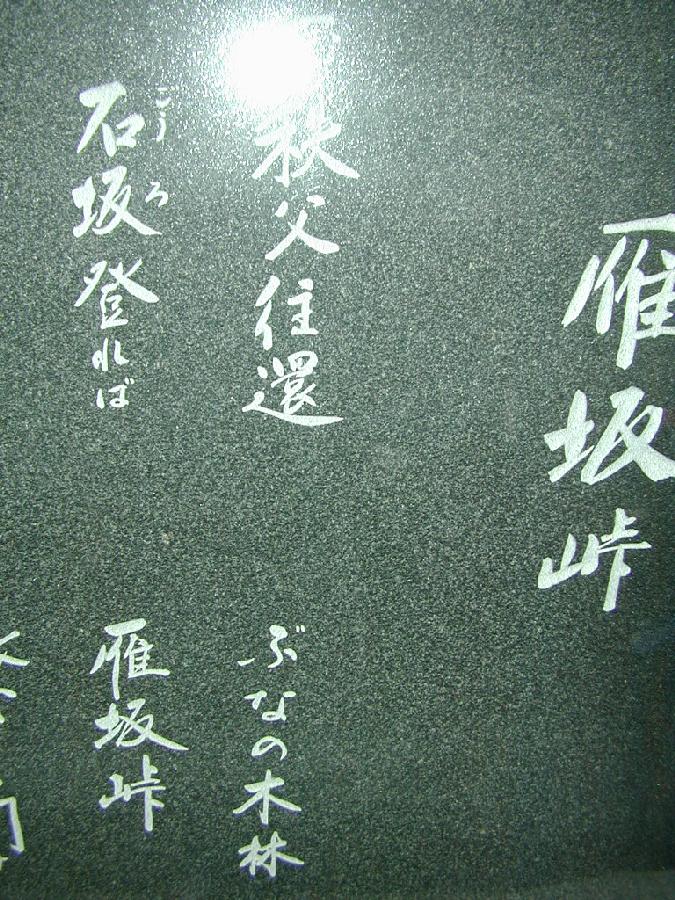 雁坂峠
秩父往還
ぶなの木林
石坂登れば
ごうろ
雁坂峠